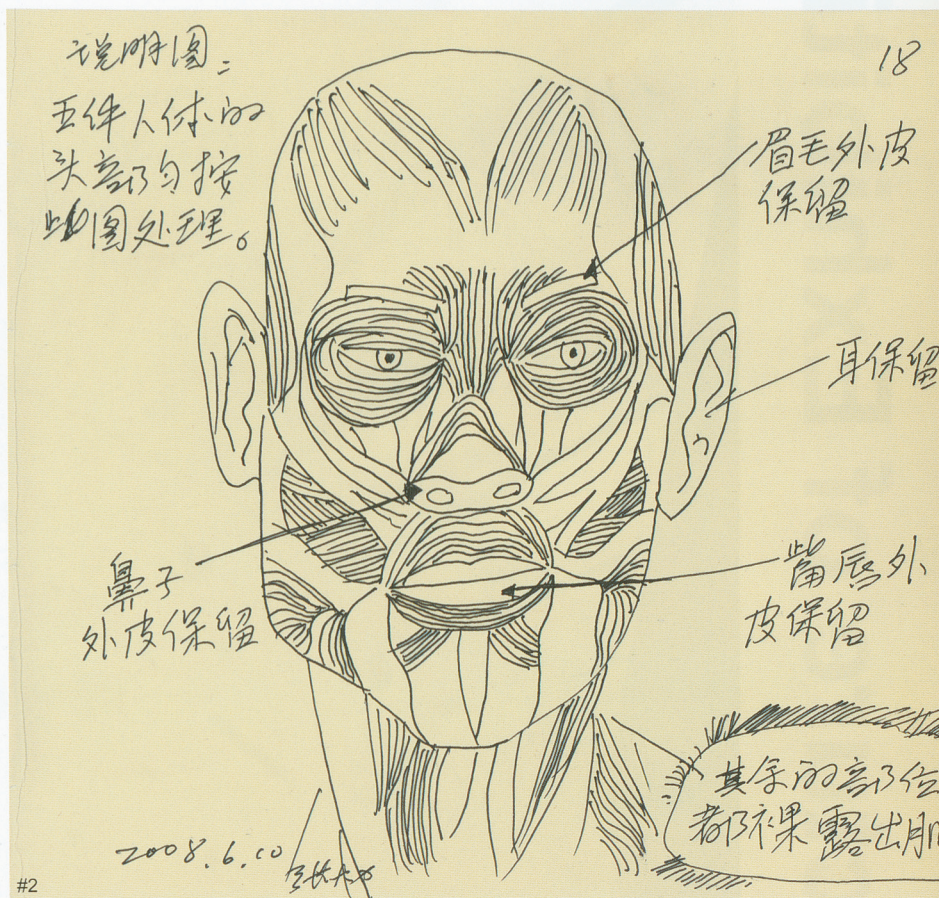 说明图:
五件人体的
头部均按
此图处理。
18
眉毛外皮
保留
耳保留
鼻子
外皮保留
嘴唇外
皮保留
其余的部位
都裸露出肌
2008.6.10
#2